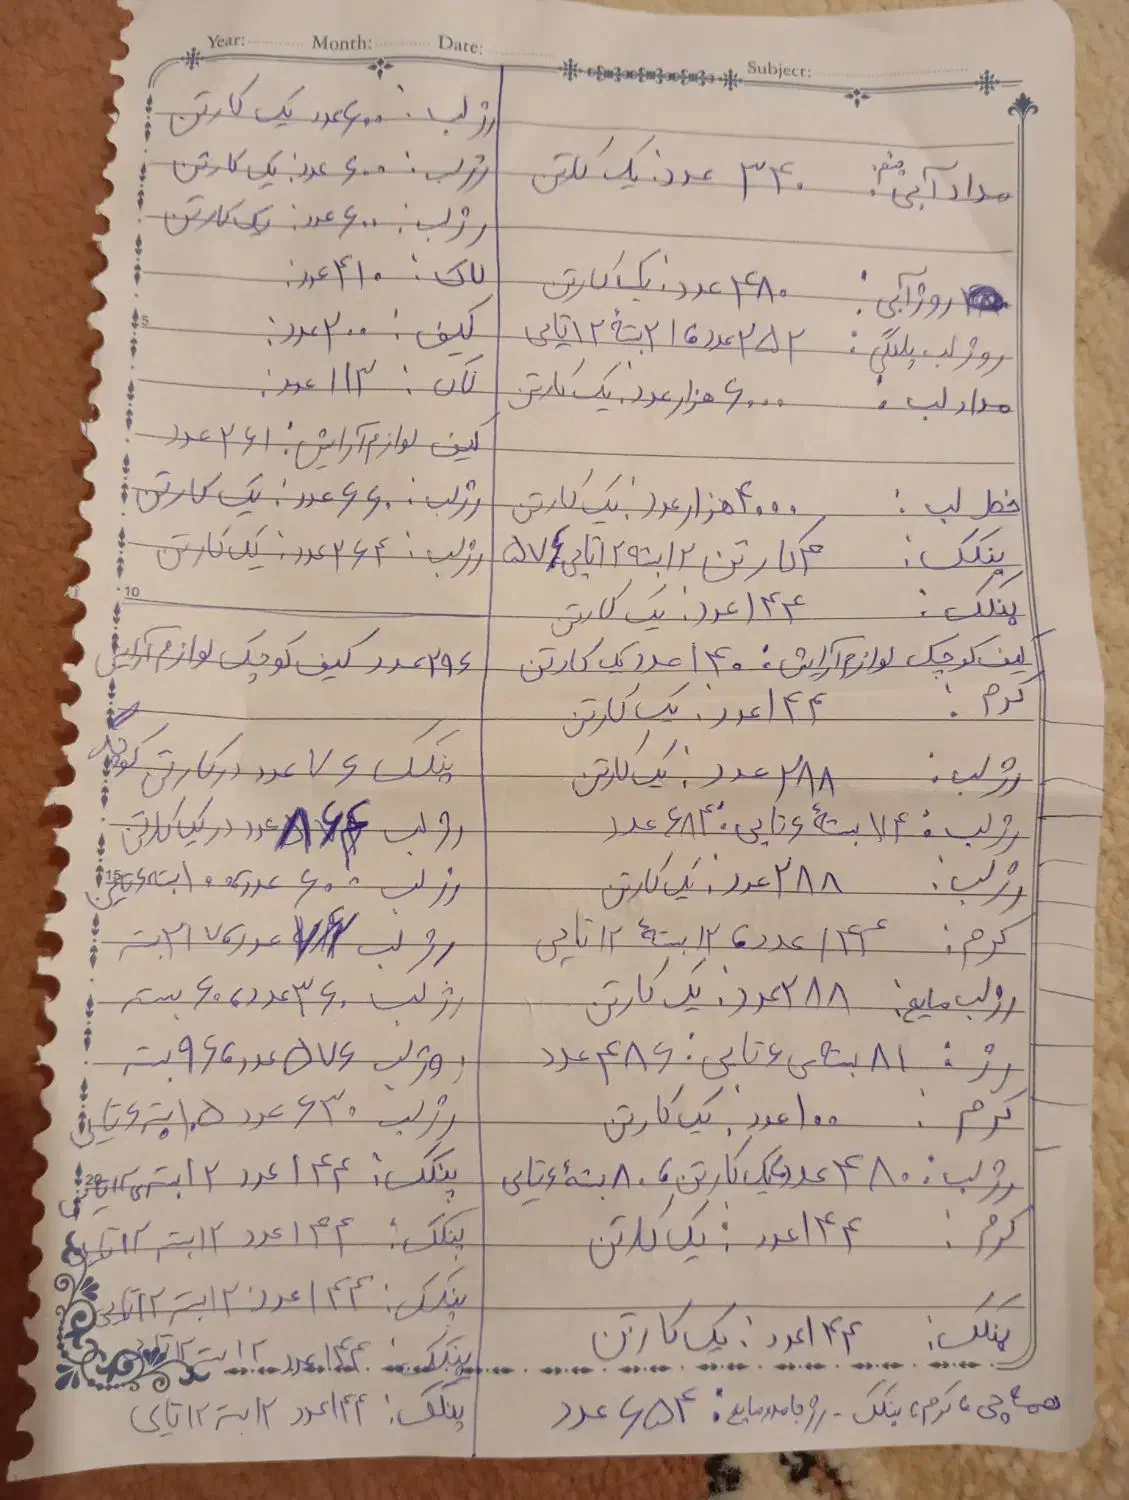 Year: Month: Date: Subject:
مداد آبی: ۳۴۰ عدد: یک کارتن
روژ آبی: ۴۸۰ عدد: یک کارتن
روژ لب پلنگی: ۲۵۲ عدد، ۲۱ بستهٔ ۱۲ تایی
مداد لب: ۶۰۰۰ هزار عدد: یک کارتن
خط لب: ۴۰۰۰ هزار عدد: یک کارتن
پنکک: ۴ کارتن ۱۲ بسته ۱۲ تایی ۵۷۶
پنکک: ۱۴۴ عدد: یک کارتن
کیف کوچک لوازم آرایش: ۱۴۰ عدد یک کارتن
کرم: ۱۴۴ عدد: یک کارتن
رژ لب: ۲۸۸ عدد: یک کارتن
رژ لب: ۷۴ بستهٔ ۶ تایی: ۶۸۴ عدد
رژ لب: ۲۸۸ عدد: یک کارتن
کرم: ۱۴۴ عدد، ۱۲ بستهٔ ۱۲ تایی
رژ لب مایع: ۲۸۸ عدد: یک کارتن
رژ: ۸۱ بسته‌ی ۶ تایی: ۴۸۶ عدد
کرم: ۱۰۰ عدد: یک کارتن
رژ لب: ۴۸۰ عدد یک کارتن، ۸۰ بستهٔ ۶ تایی
کرم: ۱۴۴ عدد: یک کارتن
پنکک: ۱۴۴ عدد: یک کارتن
کرم، پنکک - رژ جامد و مایع: ۶۵۴ عدد
رژ لب: ۶۰۰ عدد یک کارتن
رژ لب: ۶۰۰ عدد: یک کارتن
رژ لب: ۶۰۰ عدد: یک کارتن
لاک: ۴۱۰ عدد:
کیف: ۲۰۰ عدد:
لاک: ۱۱۳ عدد:
کیف لوازم آرایش: ۲۶۱ عدد
رژ لب: ۶۶۰ عدد: یک کارتن
رژ لب: ۲۶۴ عدد: یک کارتن
۲۹۶ عدد کیف کوچک لوازم آرایش
پنکک ۷۶ عدد در کارتن
رژ لب ۸۶۴ عدد در یک کارتن
رژ لب ۶۰۰ عدد، ۱۰۰ بسته ۶ تایی
رژ لب عدد، بسته
رژ لب ۳۶۰ عدد، ۶۰ بسته
روژ لب ۵۷۶ عدد، ۹۶ بسته
رژ لب ۶۳۰ عدد ۱۰۵ بسته ۶ تایی
پنکک: ۱۴۴ عدد ۱۲ بسته‌ی ۱۲ تایی
پنکک: ۱۴۴ عدد ۱۲ بسته ۱۲ تایی
پنکک: ۱۴۴ عدد: ۱۲ بسته ۱۲ تایی
پنکک: ۱۴۴ عدد ۱۲ بسته ۱۲ تایی
پنکک: ۱۴۴ عدد ۱۲ بسته ۱۲ تایی
5
10
15
20